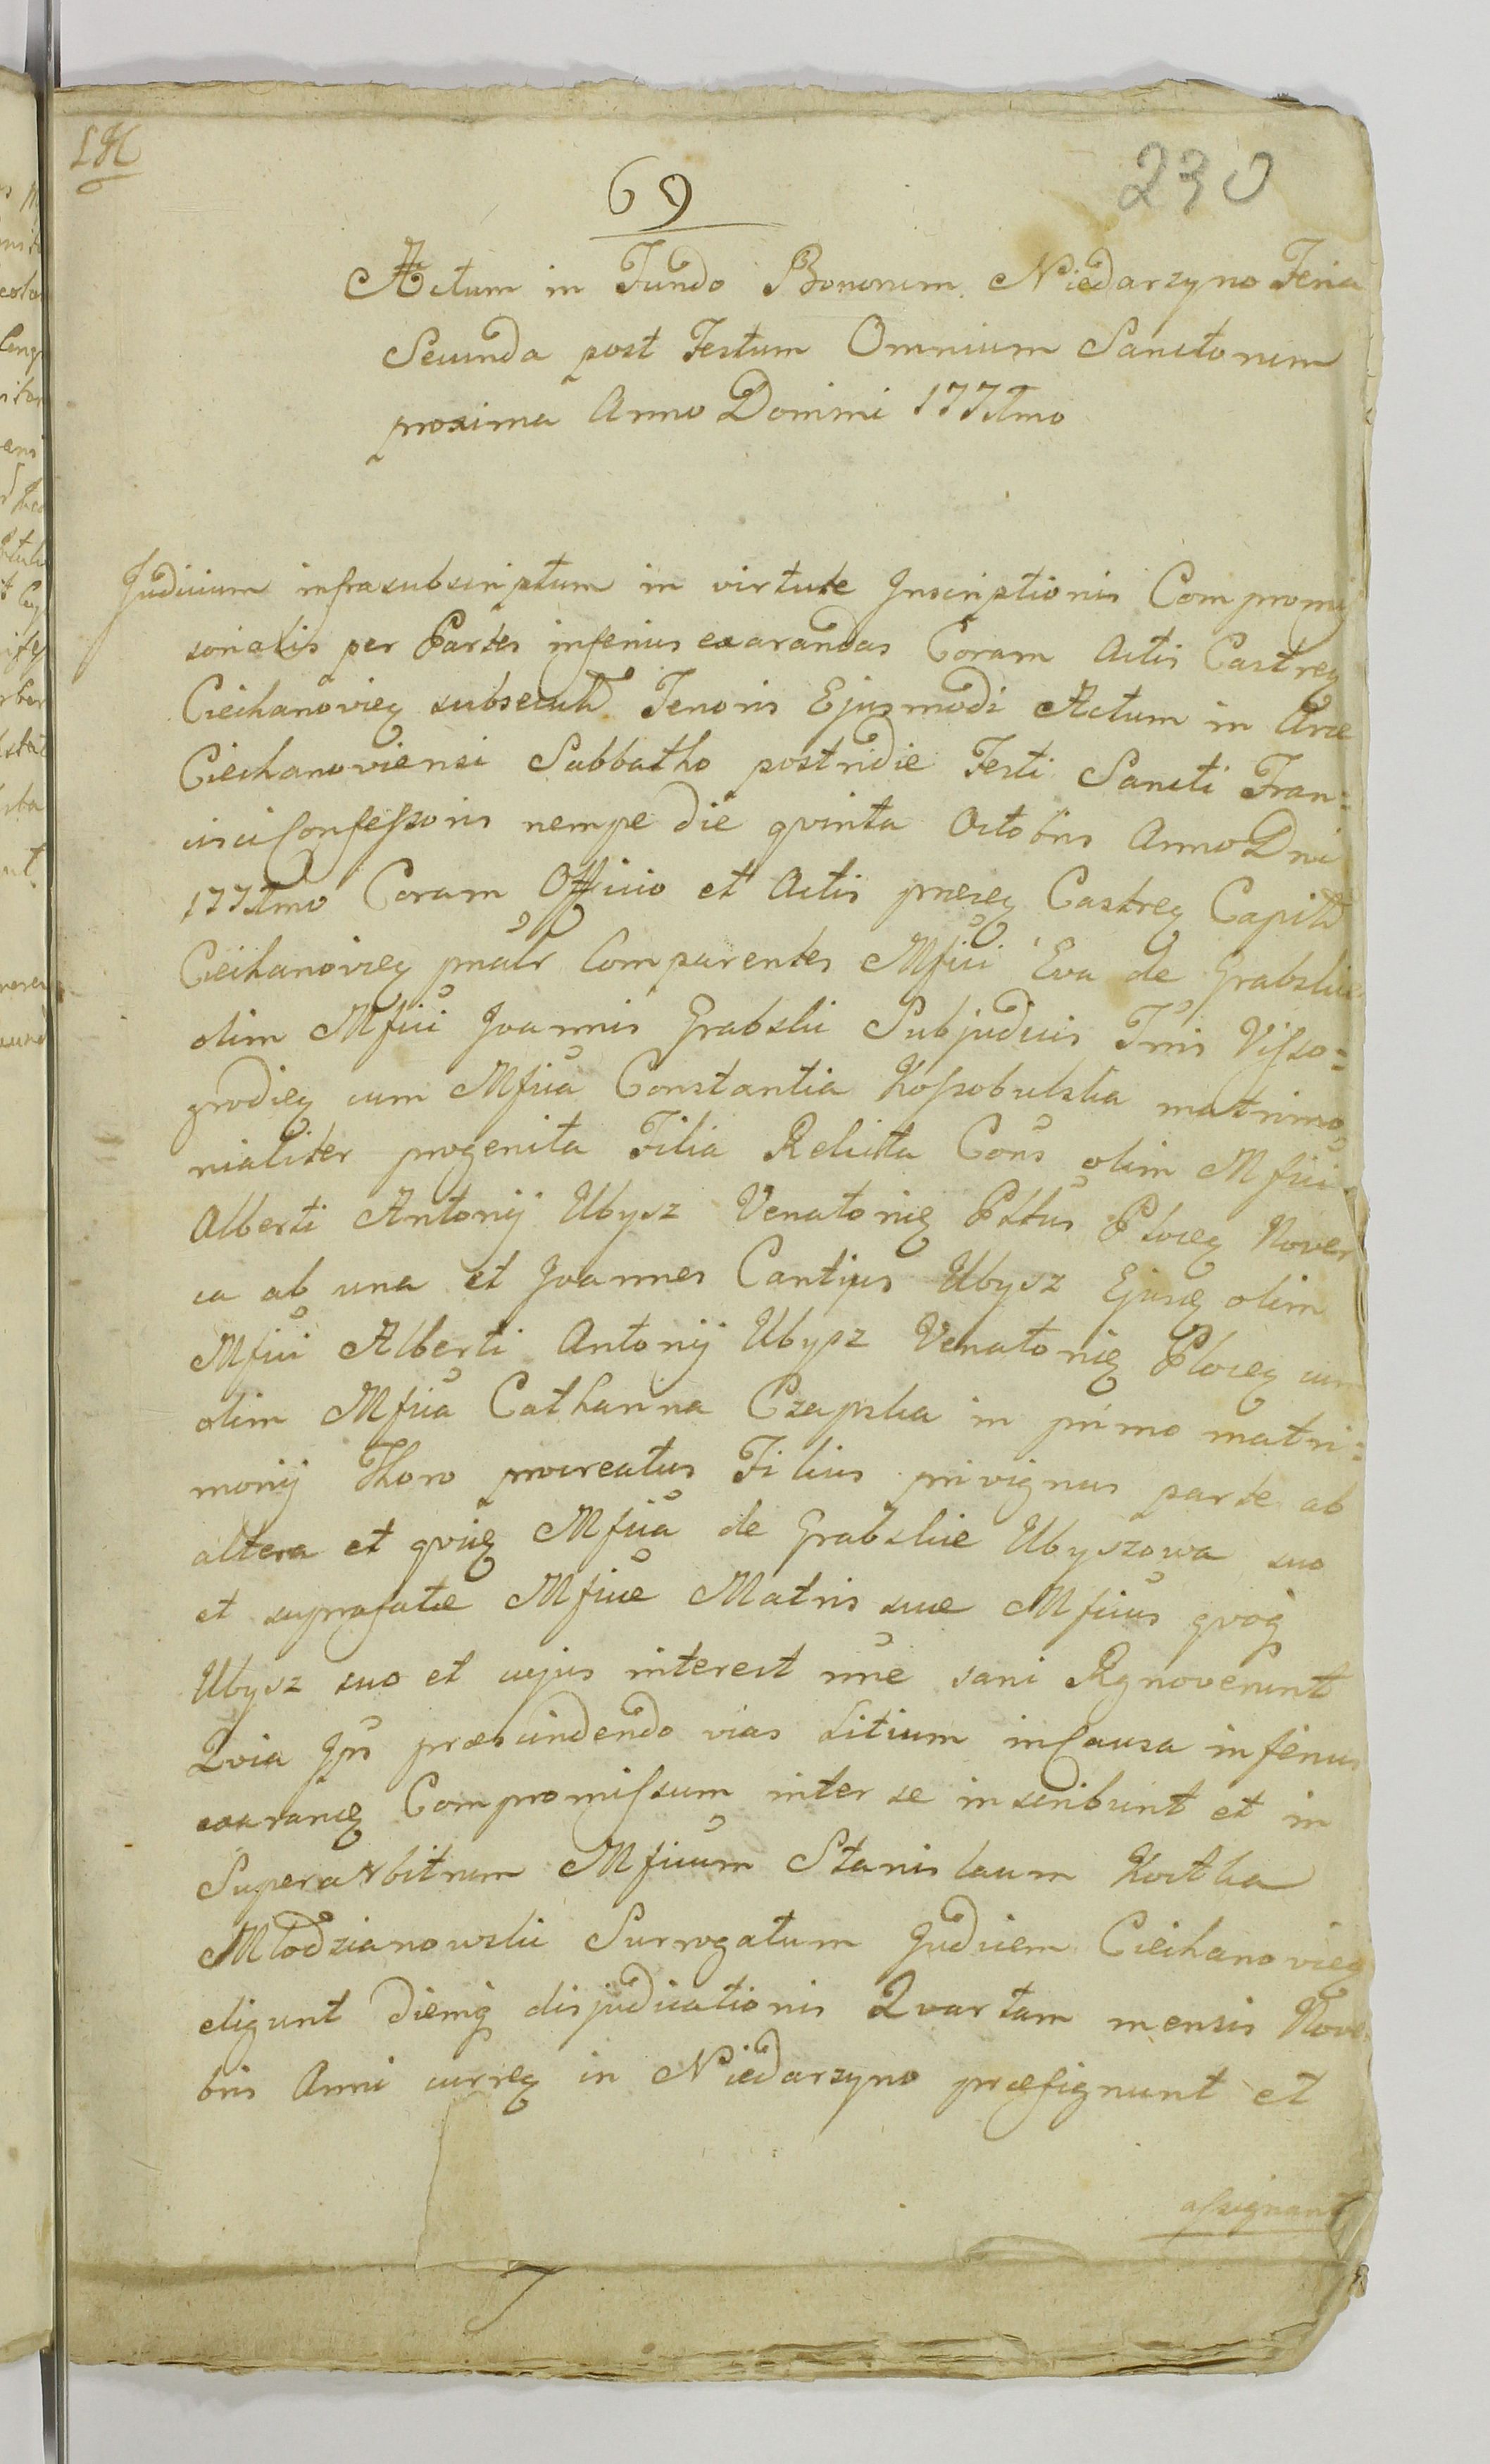 69
230
Actum in Fundo Bonorum Niedarzyno Feria
Secunda post Festum Omnium Sanctorum
proxima Anno Domini
Judicium infrasubscriptum in virtute Inscriptionis Compromis
sorialis per Partes inferius exarandas Coram Actis Castreȝ
Ciechanovieȝ subsecut Tenoris Ejusmodi Actum in Arce
Ciechanoviensi Sabbatho postridie Festi Sancti Fran=
cisci Confessoris nempe die qvinta Octobris Anno Dni
Coram Officio et Actis præseȝ Castreȝ Capit
Ciechanovieȝ pnālr Comparentes Mfici Eva de Grabskie
olim Mfici Joannis Grabski Subjudicis Trris Visso=
grodieȝ cum Mfica Constantia Kossobudzka matrimo
nialiter progenita Filia Relicta Cons olim Mfici
Alberti Antonij Ubysz Venatoris Pttus Ploceȝ Nover
ca ab una et Joannes Cantius Ubysz Ejusȝ olim
Mfici Alberti Antonij Ubysz Venatoris Ploceȝ cum
olim Mfica Catharina Czapska in primo matri=
monij Thoro procreatus Filius privignus parte ab
altera et qviȝ Mfica de Grabskie Ubyszowa suo
et suprafatæ Mficæ Matris suæ Mficus qvoqȝ
Ubysz suo et cujus interest nñe sani Rgnoverunt
Qvia Ipsi præscindendo vias Litium in Causa inferius
exaranȝ Compromissum inter se inscribunt et in
Superarbitrum Mficum Stanislaum Kostka
Młodzianowski Surrogatum Judicem Ciechanovieȝ
eligunt diemqȝ disjudicationis Qvartam mensis Nove
bris Anni curreȝ in Niedarzyno præfigunt et
assignant